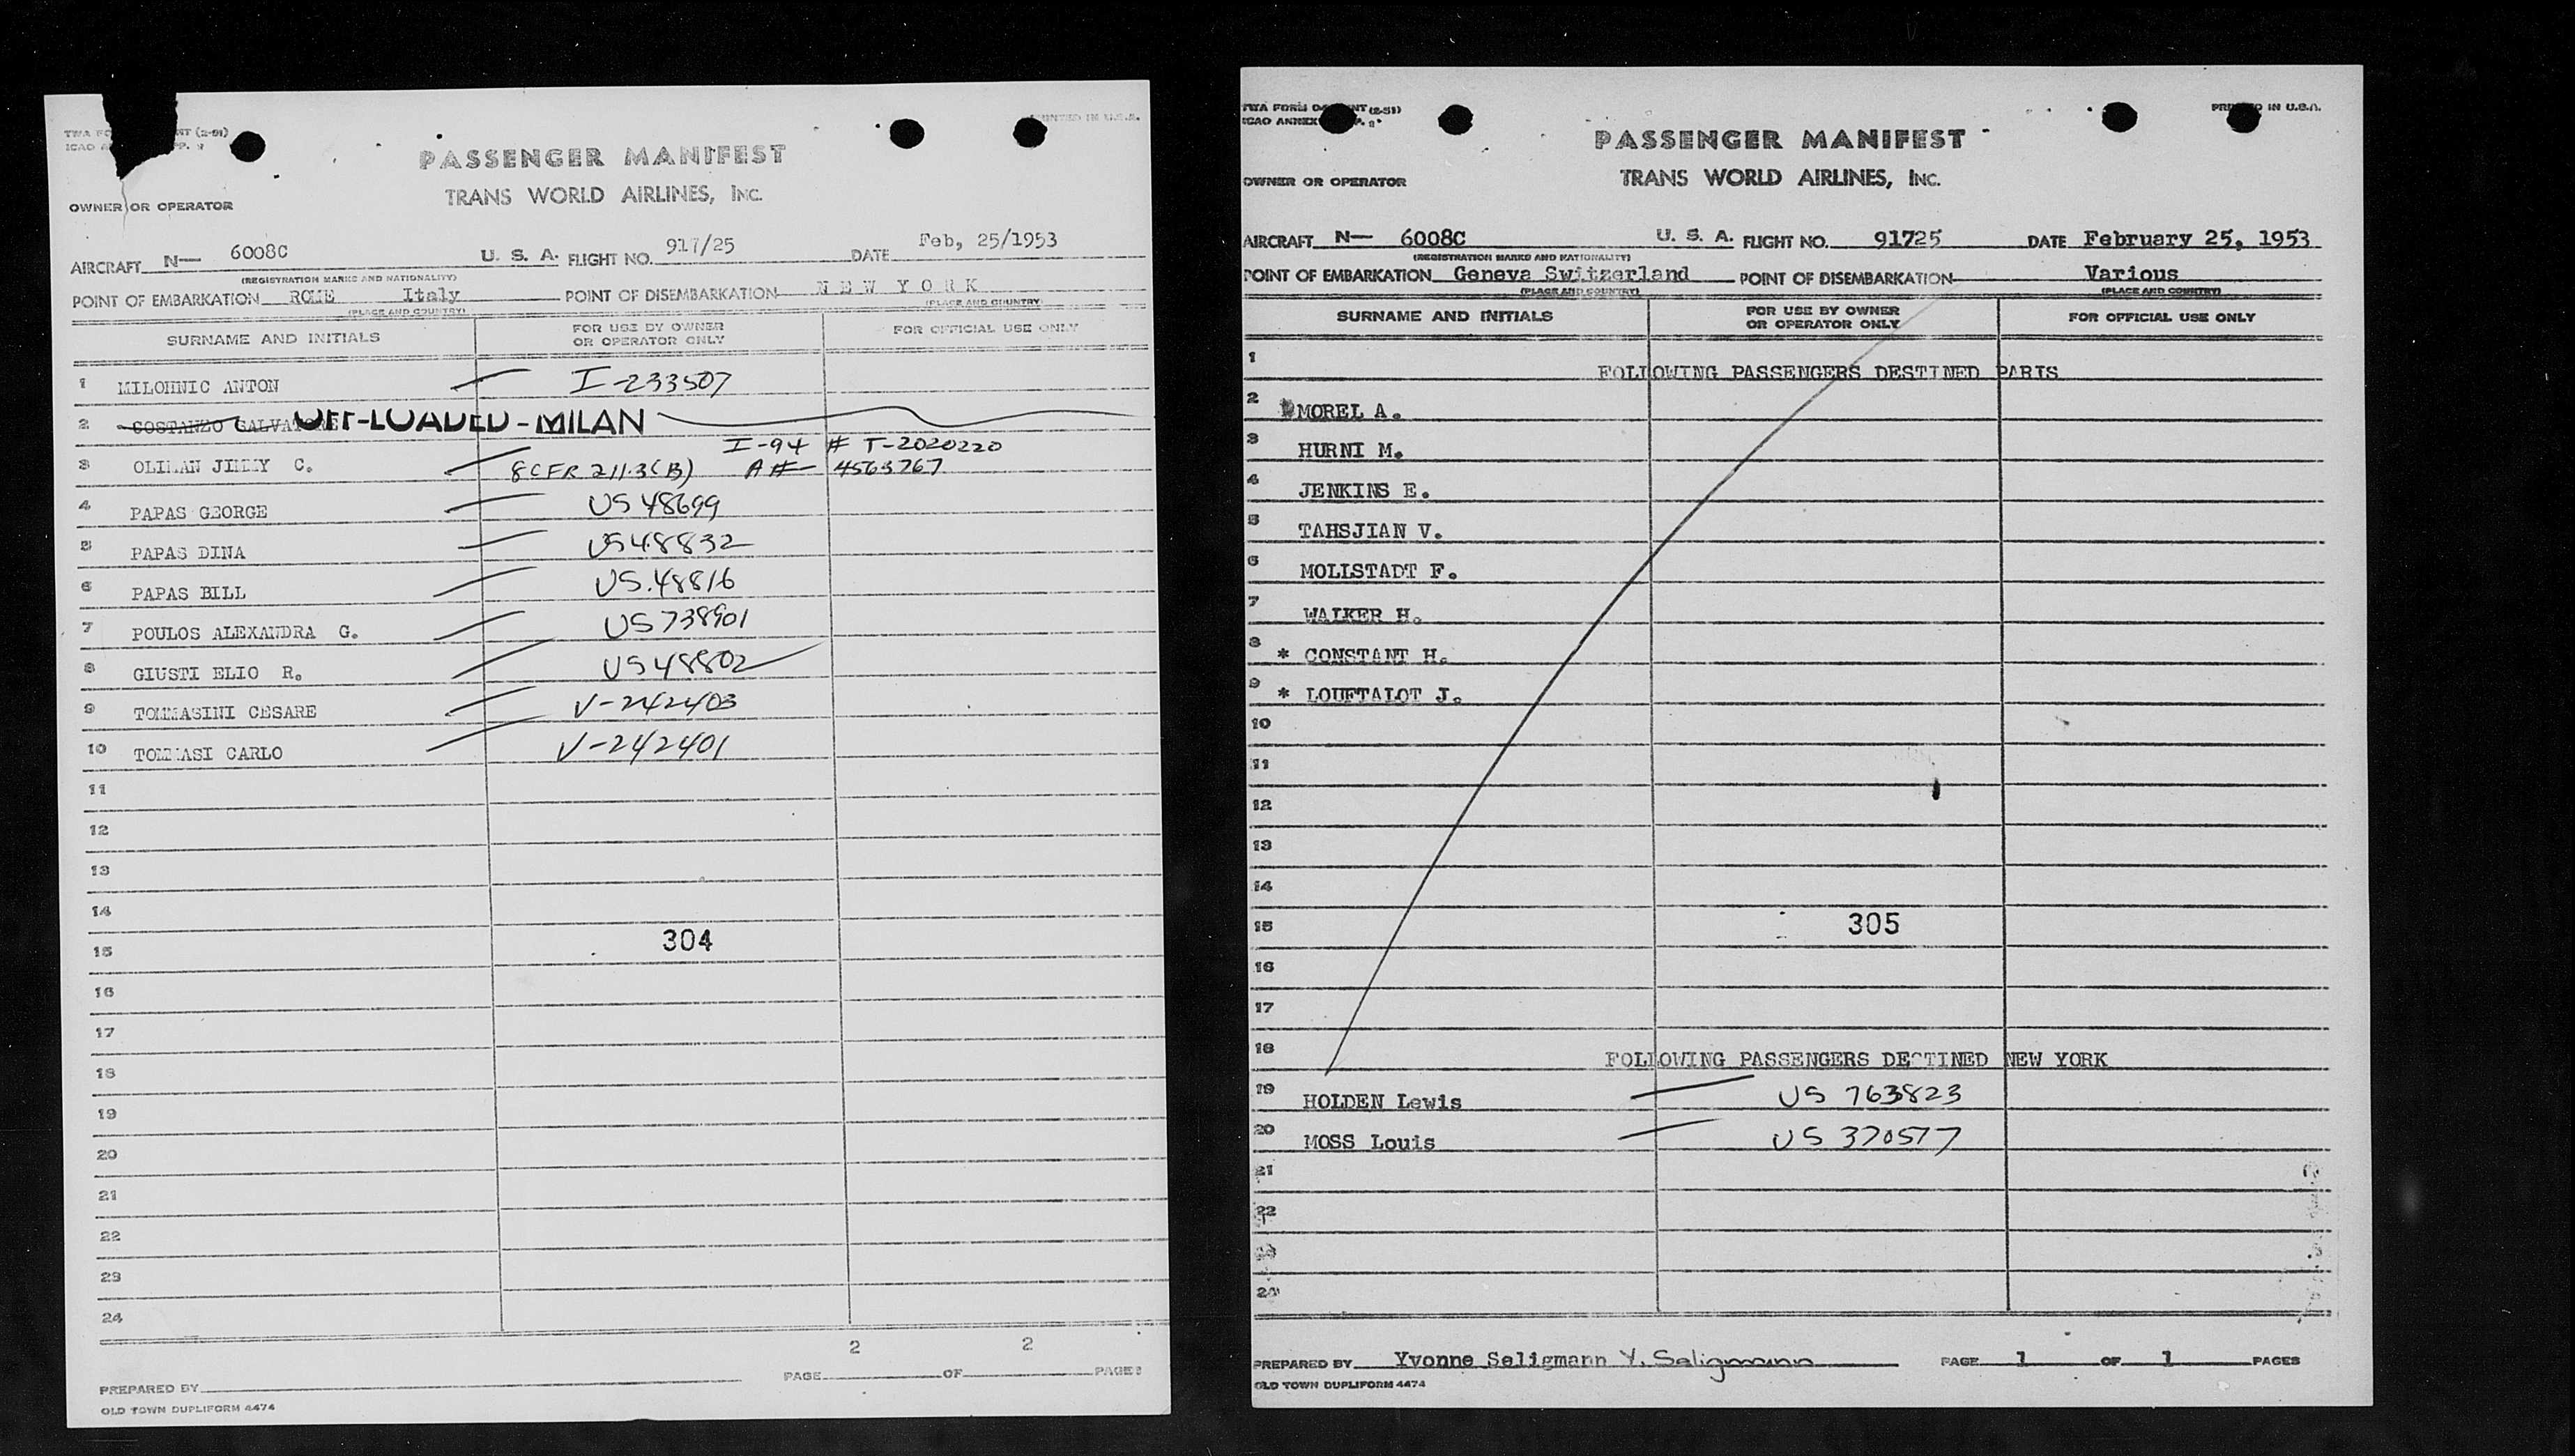 PASSENGER MANIFEST
TRANS WORLD AIRLINES, INC.
OWNER OR OPERATOR
AIRCRAFT N— 6008C U. S. A. FLIGHT NO. 917/25 DATE Feb, 25/1953
(REGISTRATION MARKS AND NATIONALITY)
POINT OF EMBARKATION ROME Italy POINT OF DISEMBARKATION N E W Y O R K
(PLACE AND COUNTRY) (PLACE AND COUNTRY)
SURNAME AND INITIALS FOR USE BY OWNER OR OPERATOR ONLY FOR OFFICIAL USE ONLY
1 MILOHNIC ANTON I-233507
2 COSTANZO SALVATORE OFF-LOADED - MILAN
I-94 # T-2020220
3 OLIMAN JIMMY C. 8CFR 211.3(B) A#- 4563767
4 PAPAS GEORGE US 48699
5 PAPAS DINA US 48832
6 PAPAS BILL US.48816
7 POULOS ALEXANDRA G. US 738901
8 GIUSTI ELIO R. US 48802
9 TOMMASINI CESARE V-242403
10 TOMMASI CARLO V-242401
11
12
13
14
15 304
16
17
18
19
20
21
22
23
24
PREPARED BY PAGE 2 OF 2 PAGES
OLD TOWN DUPLIFORM 4474
PRINTED IN U.S.A.
PASSENGER MANIFEST
TRANS WORLD AIRLINES, INC.
OWNER OR OPERATOR
AIRCRAFT N— 6008C U. S. A. FLIGHT NO. 91725 DATE February 25, 1953
(REGISTRATION MARKS AND NATIONALITY)
POINT OF EMBARKATION Geneva Switzerland POINT OF DISEMBARKATION Various
(PLACE AND COUNTRY) (PLACE AND COUNTRY)
SURNAME AND INITIALS FOR USE BY OWNER OR OPERATOR ONLY FOR OFFICIAL USE ONLY
1 FOLLOWING PASSENGERS DESTINED PARIS
2 MOREL A.
3 HURNI M.
4 JENKINS E.
5 TAHSJIAN V.
6 MOLLSTADT F.
7 WALKER H.
8 * CONSTANT H.
9 * LOUFTALOT J.
10
11
12
13
14
15 305
16
17
18 FOLLOWING PASSENGERS DESTINED NEW YORK
19 HOLDEN Lewis US 763823
20 MOSS Louis US 370577
21
22
23
24
PREPARED BY Yvonne Seligmann Y. Seligmann PAGE 1 OF 1 PAGES
OLD TOWN DUPLIFORM 4474